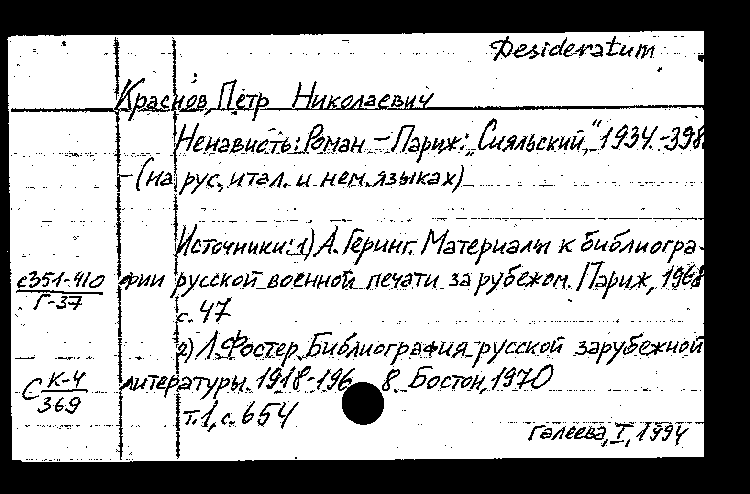 Desideratum
Краснов, Пётр Николаевич
Ненависть: Роман – Париж: „Сияльский,“ 1934. - 398
- (на рус, итал. и нем. языках)
Источники: 1) А. Геринг. Материалы к библиогра-
с351-410 фии русской военной печати за рубежом. Париж, 1968
Г-37
с. 47
2) Л. Фостер. Библиография русской зарубежной
С К-4 литературы. 1918-196 8. Бостон, 1970
369
т. 1, с. 654
Галеева, I, 1994